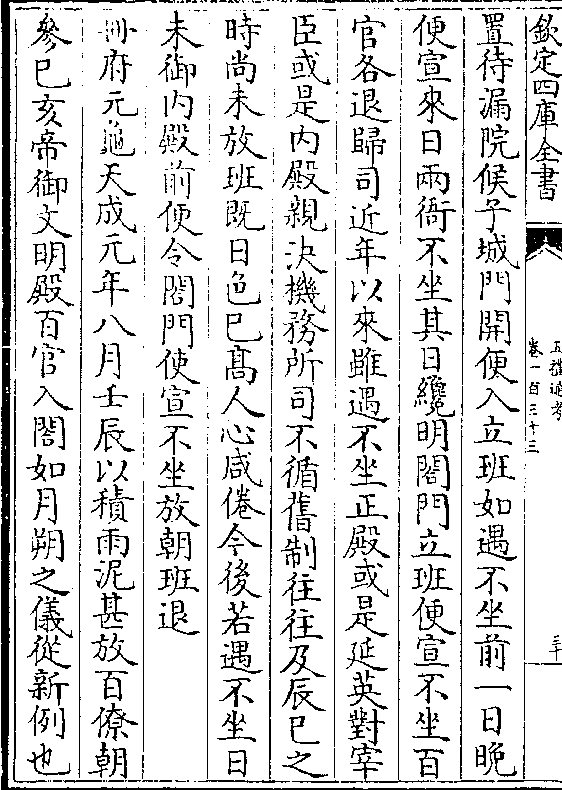 欽定四庫全書
五禮通考
卷一百三十三
三十
置待漏院候子城門開便入立班如遇不坐前一日晚
便宣來日兩衙不坐其日纔明閤門立班便宣不坐百
官各退歸司近年以來雖遇不坐正殿或是延英對宰
臣或是内殿親決機務所司不循舊制往往及辰巳之
時尚未放班既日色巳髙人心咸倦今後若遇不坐日
未御内殿前便令閤門使宣不坐放朝班退
冊府元龜天成元年八月壬辰以積雨泥甚放百僚朝
參巳亥帝御文明殿百官入閤如月朔之儀從新例也